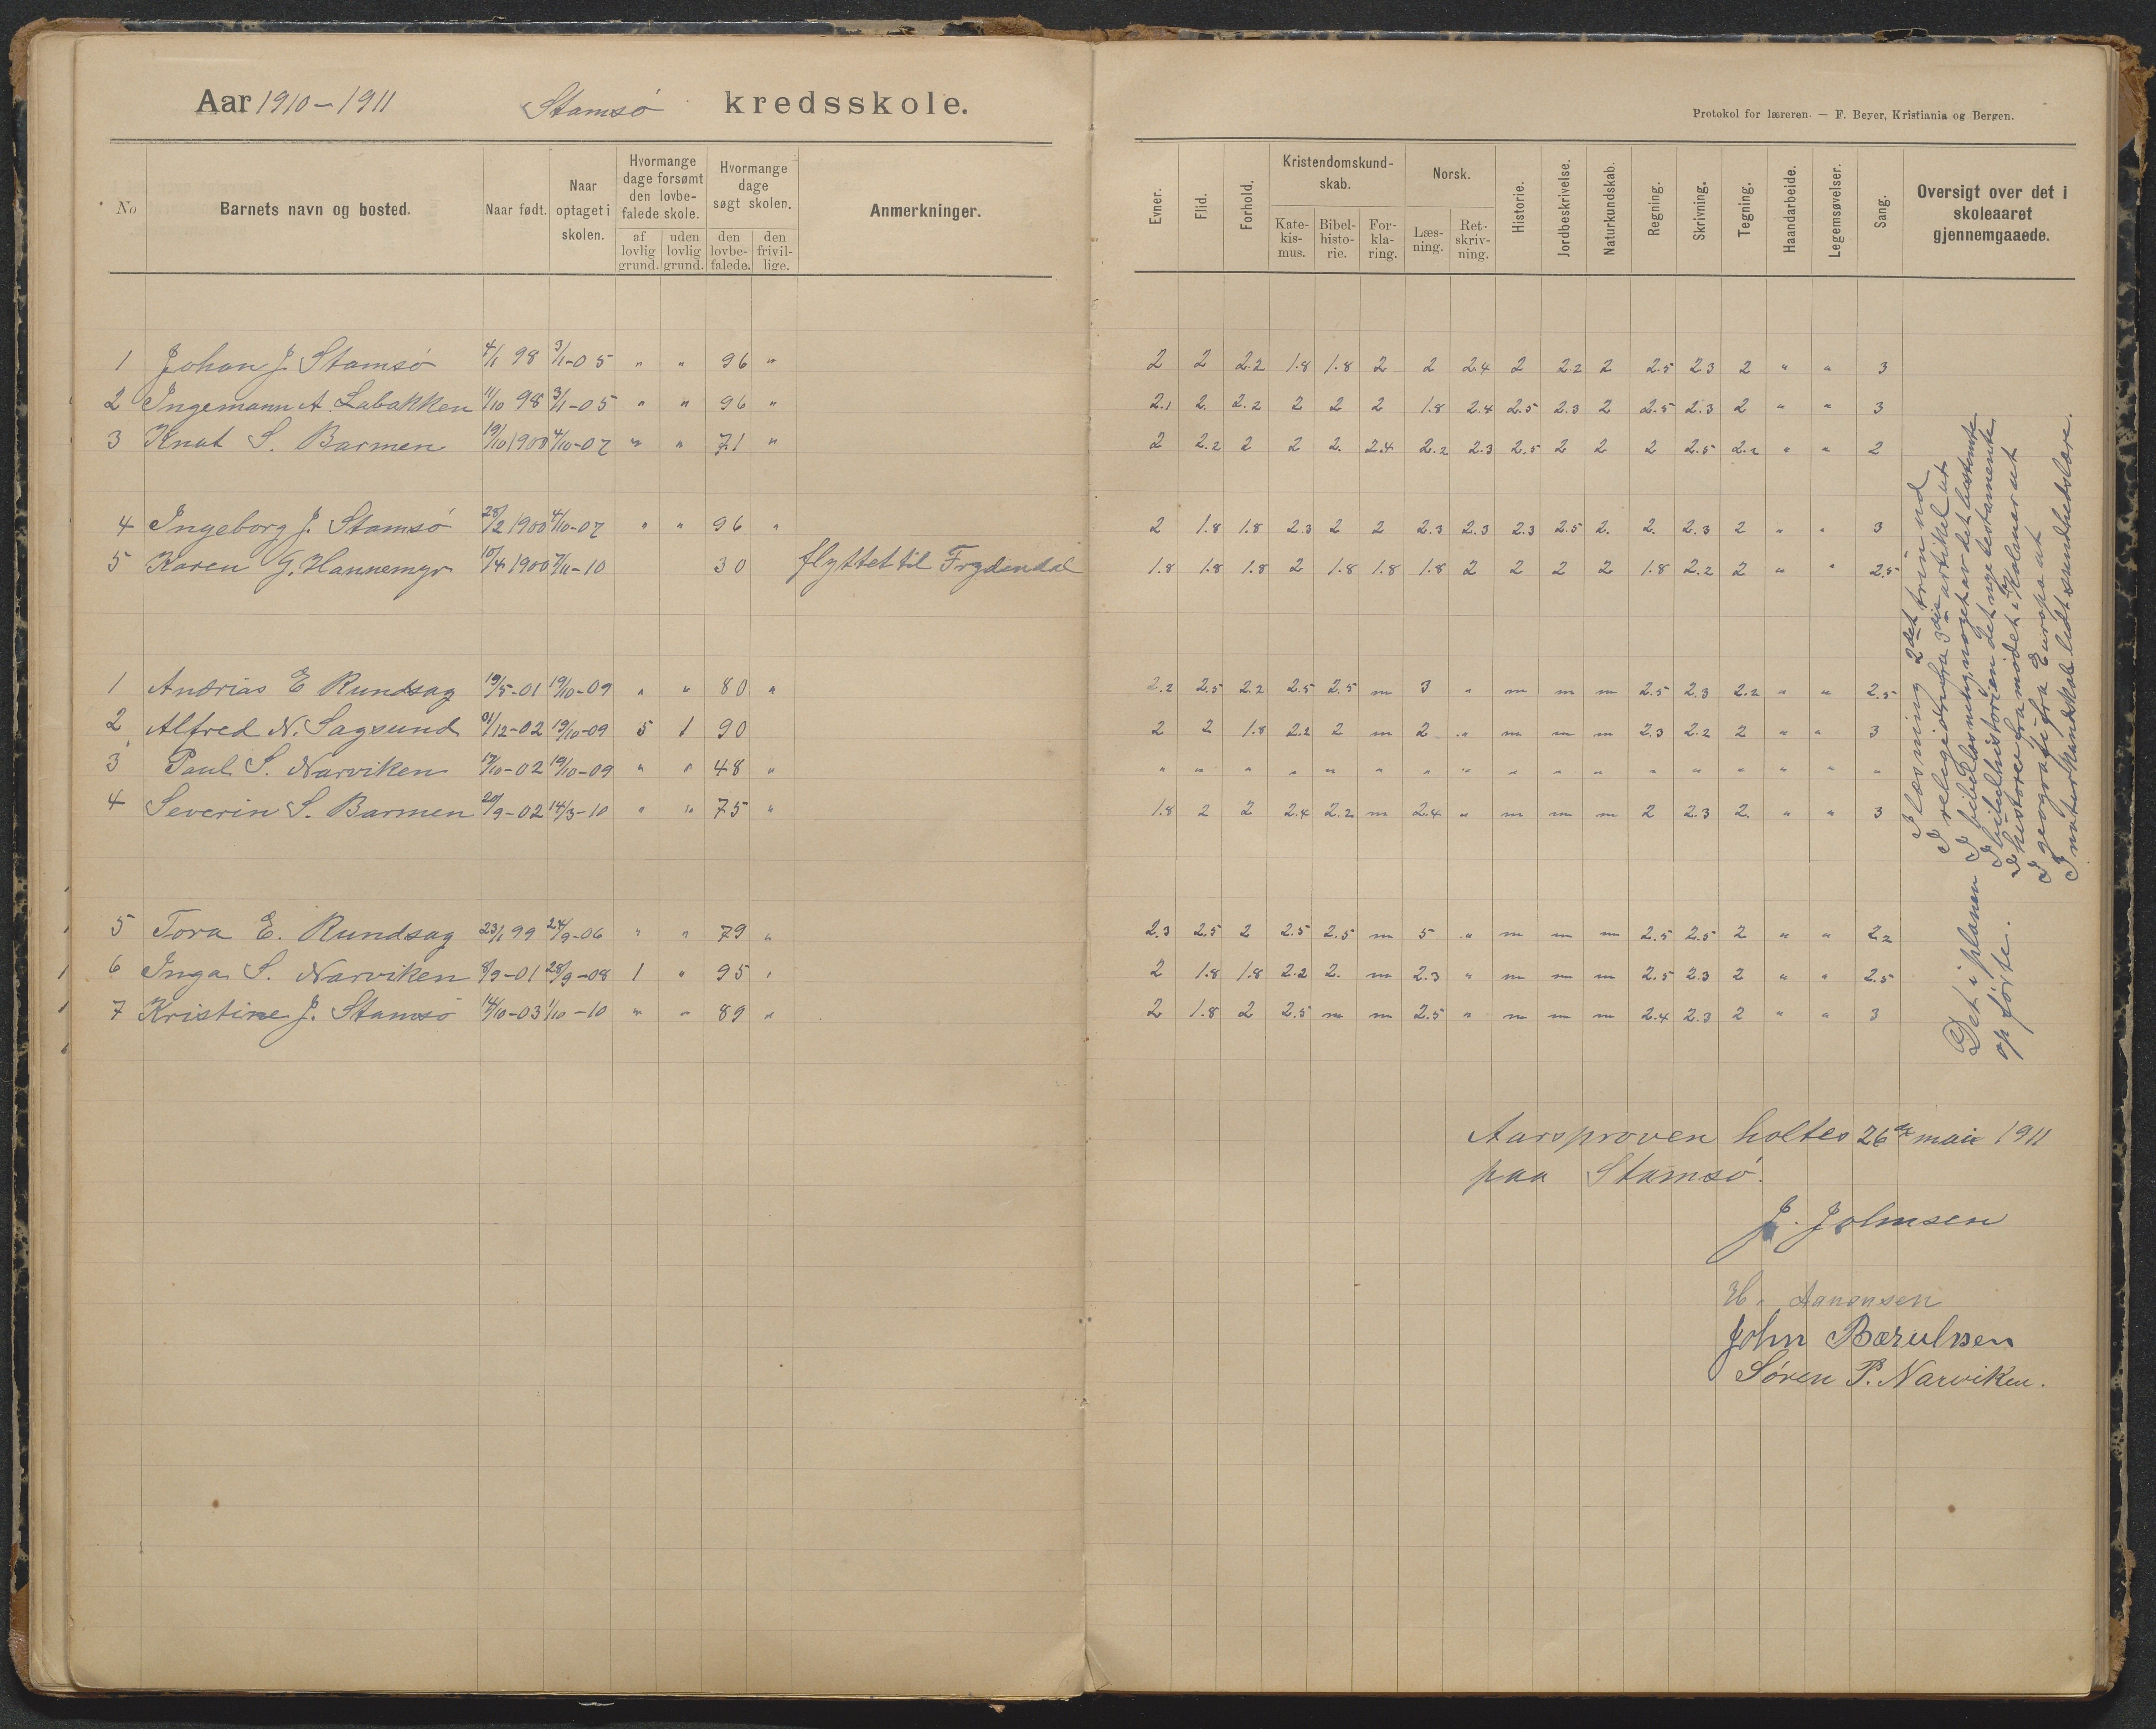 Aar 1910-1911 Stamsø kredsskole.
Protokol for læreren. — F. Beyer, Kristiania og Bergen.
No
Barnets navn og bosted.
Naar født.
Naar optaget i skolen.
Hvormange dage forsømt den lovbefalede skole.
af lovlig grund.
uden lovlig grund.
Hvormange dage søgt skolen.
den lovbefalede.
den frivillige.
Anmerkninger.
Evner.
Flid.
Forhold.
Kristendomskundskab.
Katekismus.
Bibelhistorie.
Forklaring.
Norsk.
Læsning.
Retskrivning.
Historie.
Jordbeskrivelse.
Naturkundskab.
Regning.
Skrivning.
Tegning.
Haandarbeide.
Legemsøvelser.
Sang.
Oversigt over det i skoleaaret gjennemgaaede.
1 Johan J. Stamsø 4/1 98 3/1-05 " " 96 " 2 2 2.2 1.8 1.8 2 2 2.4 2 2.2 2 2.5 2.3 2 " " 3
2 Ingemann A. Labakken 11/10 98 3/1-05 " " 96 " 2.1 2. 2.2 2 2 2 1.8 2.4 2.5 2.3 2 2.5 2.3 2 " " 3
3 Knut S. Barmen 19/10 1900 4/10-07 " " 71 " 2 2.2 2 2 2. 2.4 2.2 2.3 2.5 2 2 2 2.5 2.2 " " 2
4 Ingeborg J. Stamsø 28/2 1900 4/10-07 " " 96 " 2 1.8 1.8 2.3 2 2 2.3 2.3 2.3 2.5 2. 2. 2.3 2 " " 3
5 Karen G. Hannemyr 10/4 1900 7/11-10 30 flyttet til Frydendal 1.8 1.8 1.8 2 1.8 1.8 1.8 2 2 2 2 1.8 2.2 2 " " 2.5
1 Andrias E Rundsag 19/5-01 19/10-09 " " 80 " 2.2 2.5 2.2 2.5 2.5 " 3 " " " " 2.5 2.3 2.2 " " 2.5
2 Alfred N. Sagsund 31/12-02 19/10-09 5 1 90 2 2 1.8 2.2 2 " 2 " " " " 2.3 2.2 2 " " 3
3 Paul S. Narviken 17/10-02 19/10-09 " " 48 " " " " " " " " " " " " " " " " " "
4 Severin S. Barmen 20/9-02 14/3-10 " " 75 " 1.8 2 2 2.4 2.2 " 2.4 " " " " 2 2.3 2. " " 3
5 Tora E. Rundsag 23/1 99 24/9-06 " " 79 " 2.3 2.5 2 2.5 2.5 " 5 " " " " 2.5 2.5 2 " " 2.2
6 Inga S. Narviken 8/9-01 28/9-08 1 " 95 " 2 1.8 1.8 2.2 2. " 2.3 " " " " 2.5 2.3 2 " " 2.5
7 Kristine J. Stamsø 14/10-03 1/10-10 " " 89 " 2 1.8 2 2.5 " " 2.5 " " " " 2.4 2.3 2 " " 3
I læsning 2det trin ud
I religion fra 3die artikel ut
I bibellæsning noget av det bestemte
I bibelhistorien det nye testamente
I historie fra mødet i Kalmar ut
I geografi fra Europa ut
I naturkundskab lidt sundhedslære.
Det i planen
opførte.
Aarsprøven holtes 26de mai 1911
paa Stamsø.
J. Johnsen
H. Aanonsen
John Bærulsen
Søren P. Narviken.